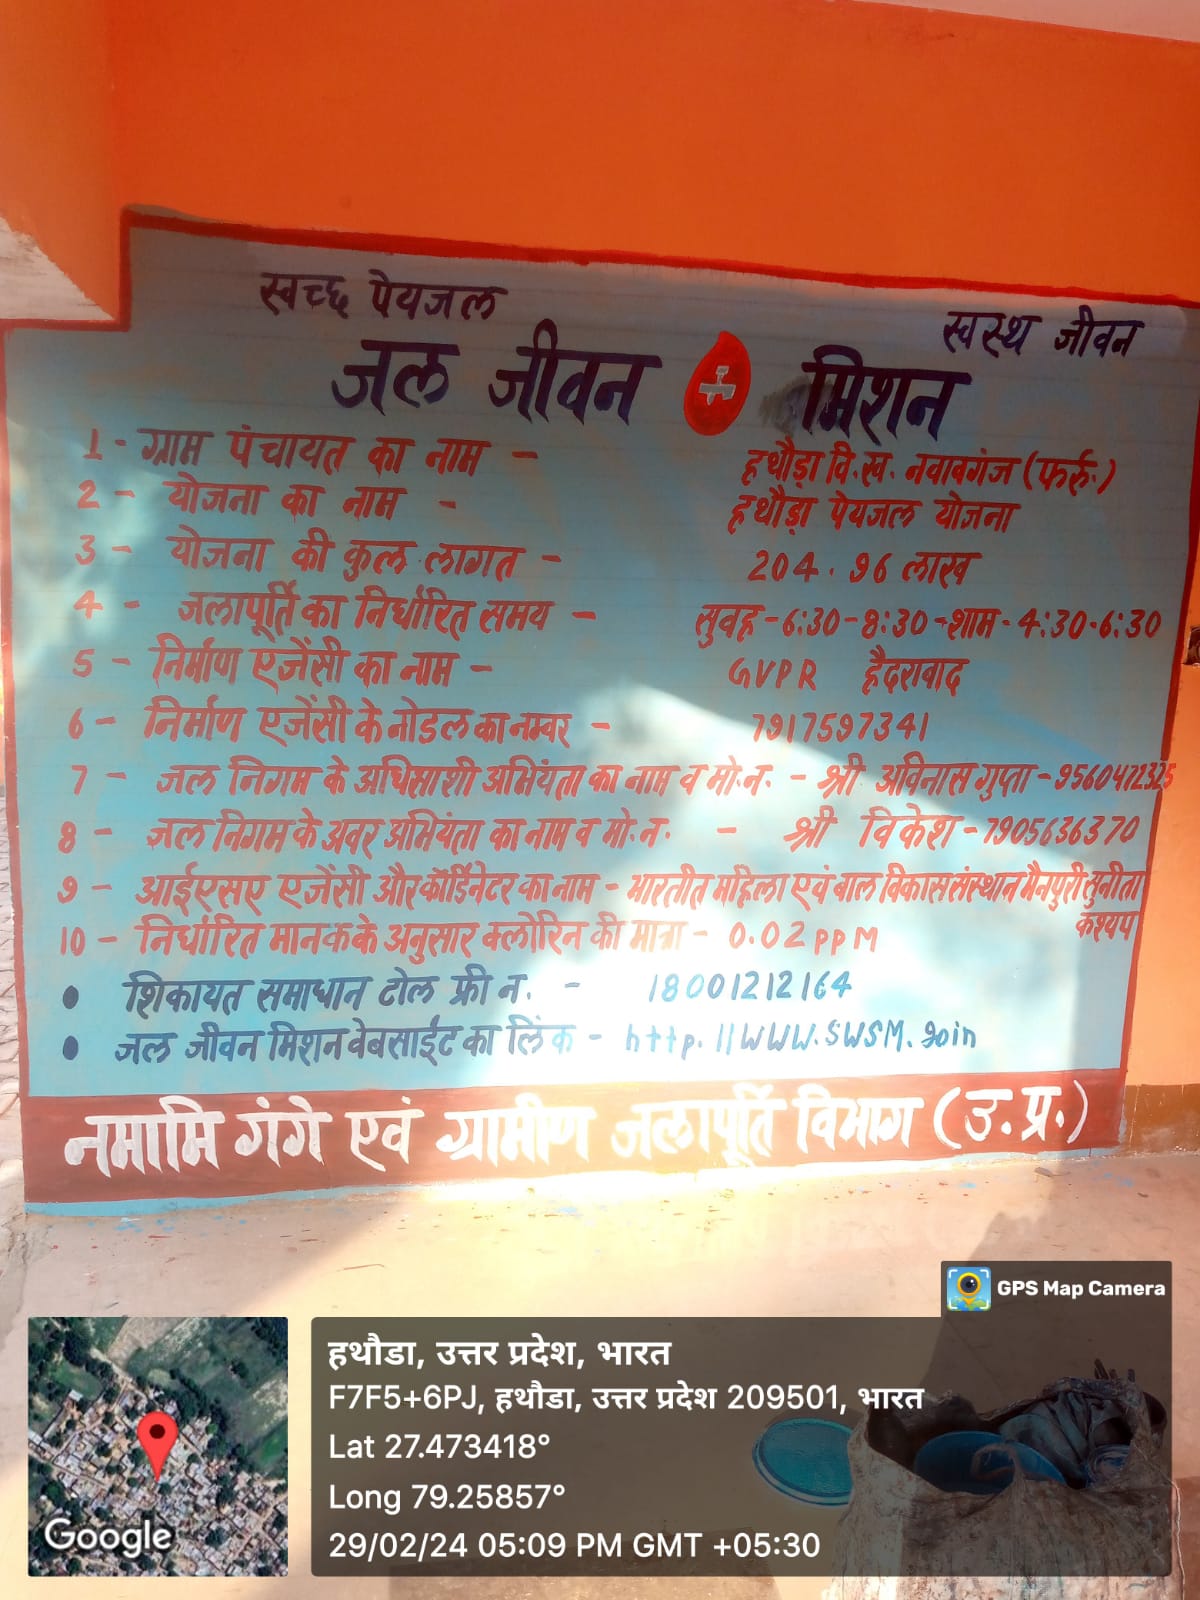 स्वच्छ पेयजल
स्वस्थ जीवन
जल जीवन मिशन
1 - ग्राम पंचायत का नाम - हथौड़ा वि.ख. नवाबगंज (फर्रु.)
2 - योजना का नाम - हथौड़ा पेयजल योजना
3 - योजना की कुल लागत - 204.96 लाख
4 - जलापूर्ति का निर्धारित समय - सुवह - 6:30 - 8:30 - शाम - 4:30-6:30
5 - निर्माण एजेंसी का नाम - GVPR हैदरावाद
6 - निर्माण एजेंसी के नोडल का नम्वर - 7917597341
7 - जल निगम के अधिसाशी अभियंता का नाम व मो.न. - श्री अविनास गुप्ता - 9560472325
8 - जल निगम के अवर अभियंता का नाम व मो.न. - श्री विकेश - 7905636370
9 - आईएसए एजेंसी और कॉर्डिनेटर का नाम - भारतीत महिला एवं बाल विकास संस्थान मैनपुरी सुनीता
कश्यप
10 - निर्धारित मानक के अनुसार क्लोरिन की मात्रा - 0.02 ppM
• शिकायत समाधान टोल फ्री न. - 18001212164
• जल जीवन मिशन वेबसाईट का लिंक - http.//WWW.SWSM.goin
नमामि गंगे एवं ग्रामीण जलापूर्ति विभाग (उ.प्र.)
GPS Map Camera
हथौडा, उत्तर प्रदेश, भारत
F7F5+6PJ, हथौडा, उत्तर प्रदेश 209501, भारत
Lat 27.473418°
Long 79.25857°
29/02/24 05:09 PM GMT +05:30
Google